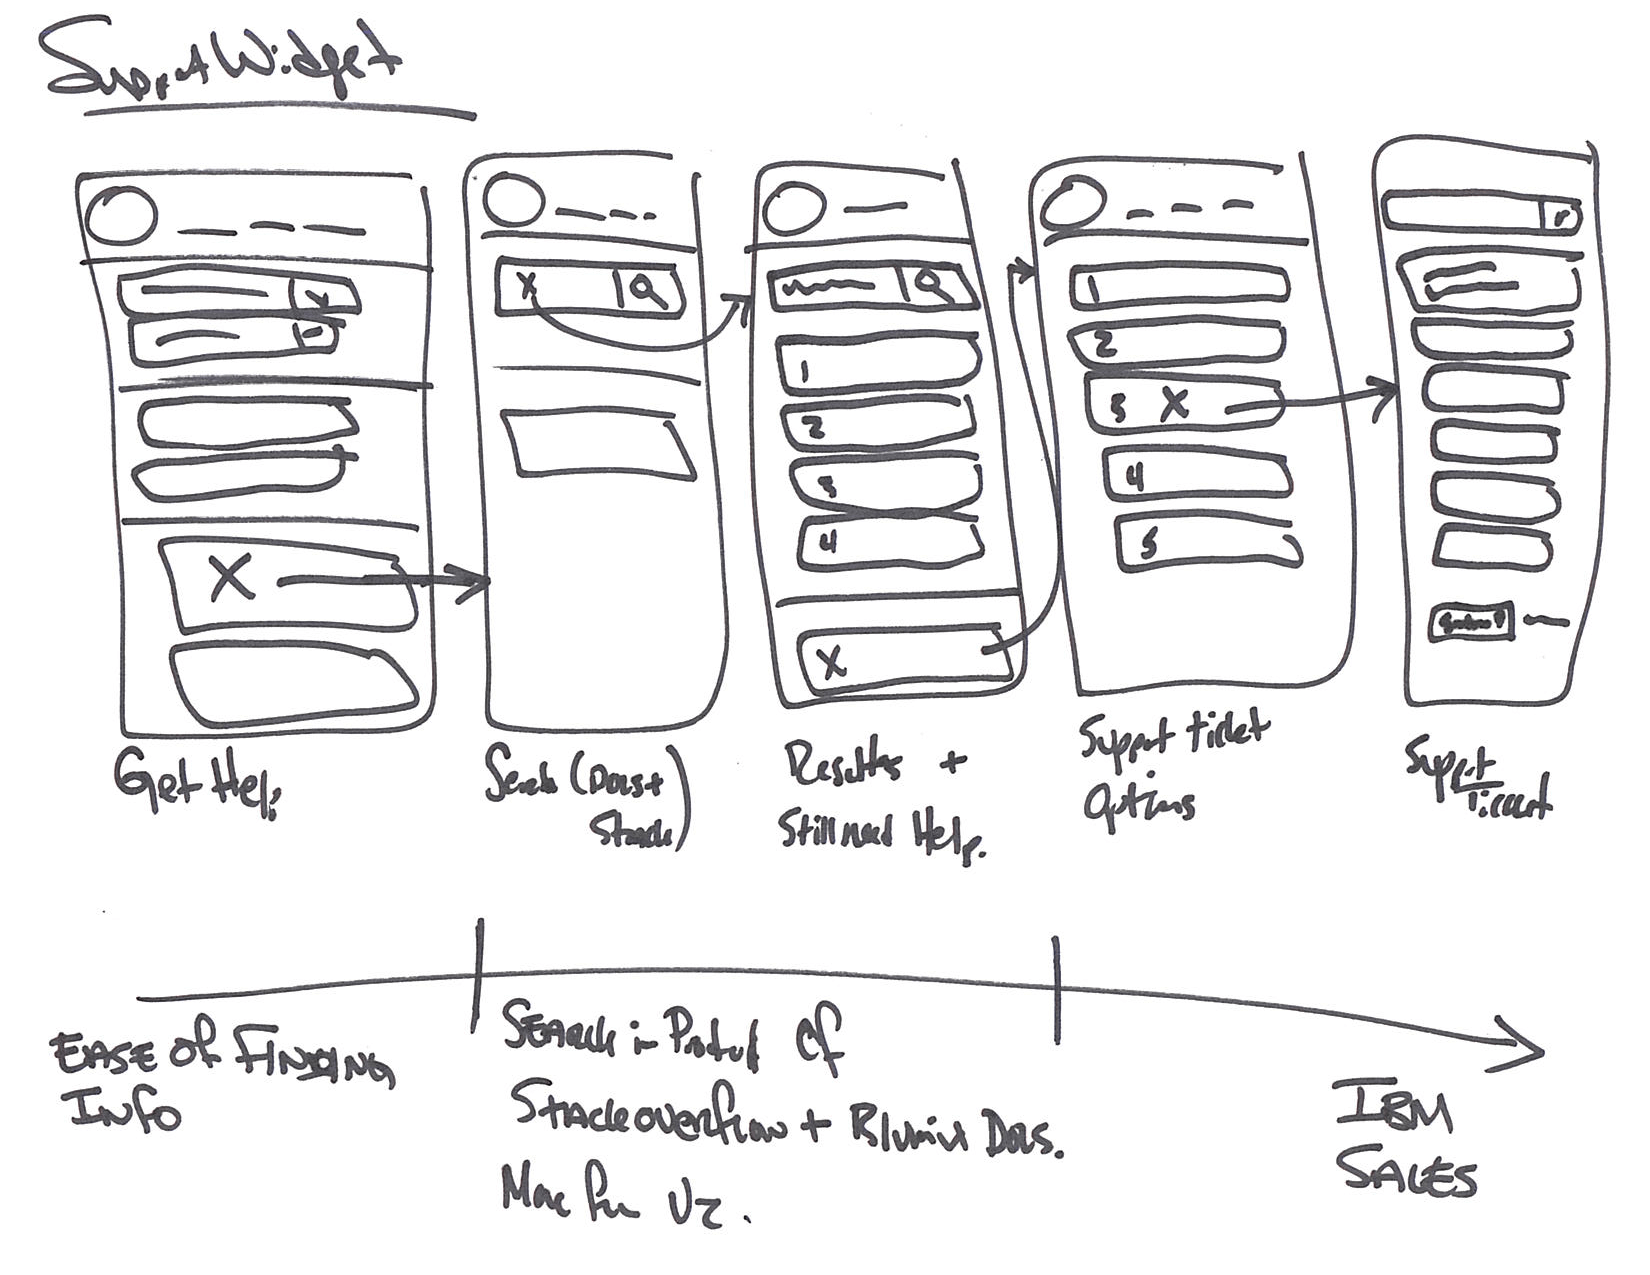 Support Widget
X
X
1
2
3
4
X
1
2
3 X
4
5
Submit
Get Help
Search (Docs +
Stack)
Results +
Still need Help.
Support ticket
Options
Support
Ticket
EASE OF FINDING
INFO
SEARCH in Product of
Stackoverflow + Bluemix Docs.
V2.
IBM
SALES